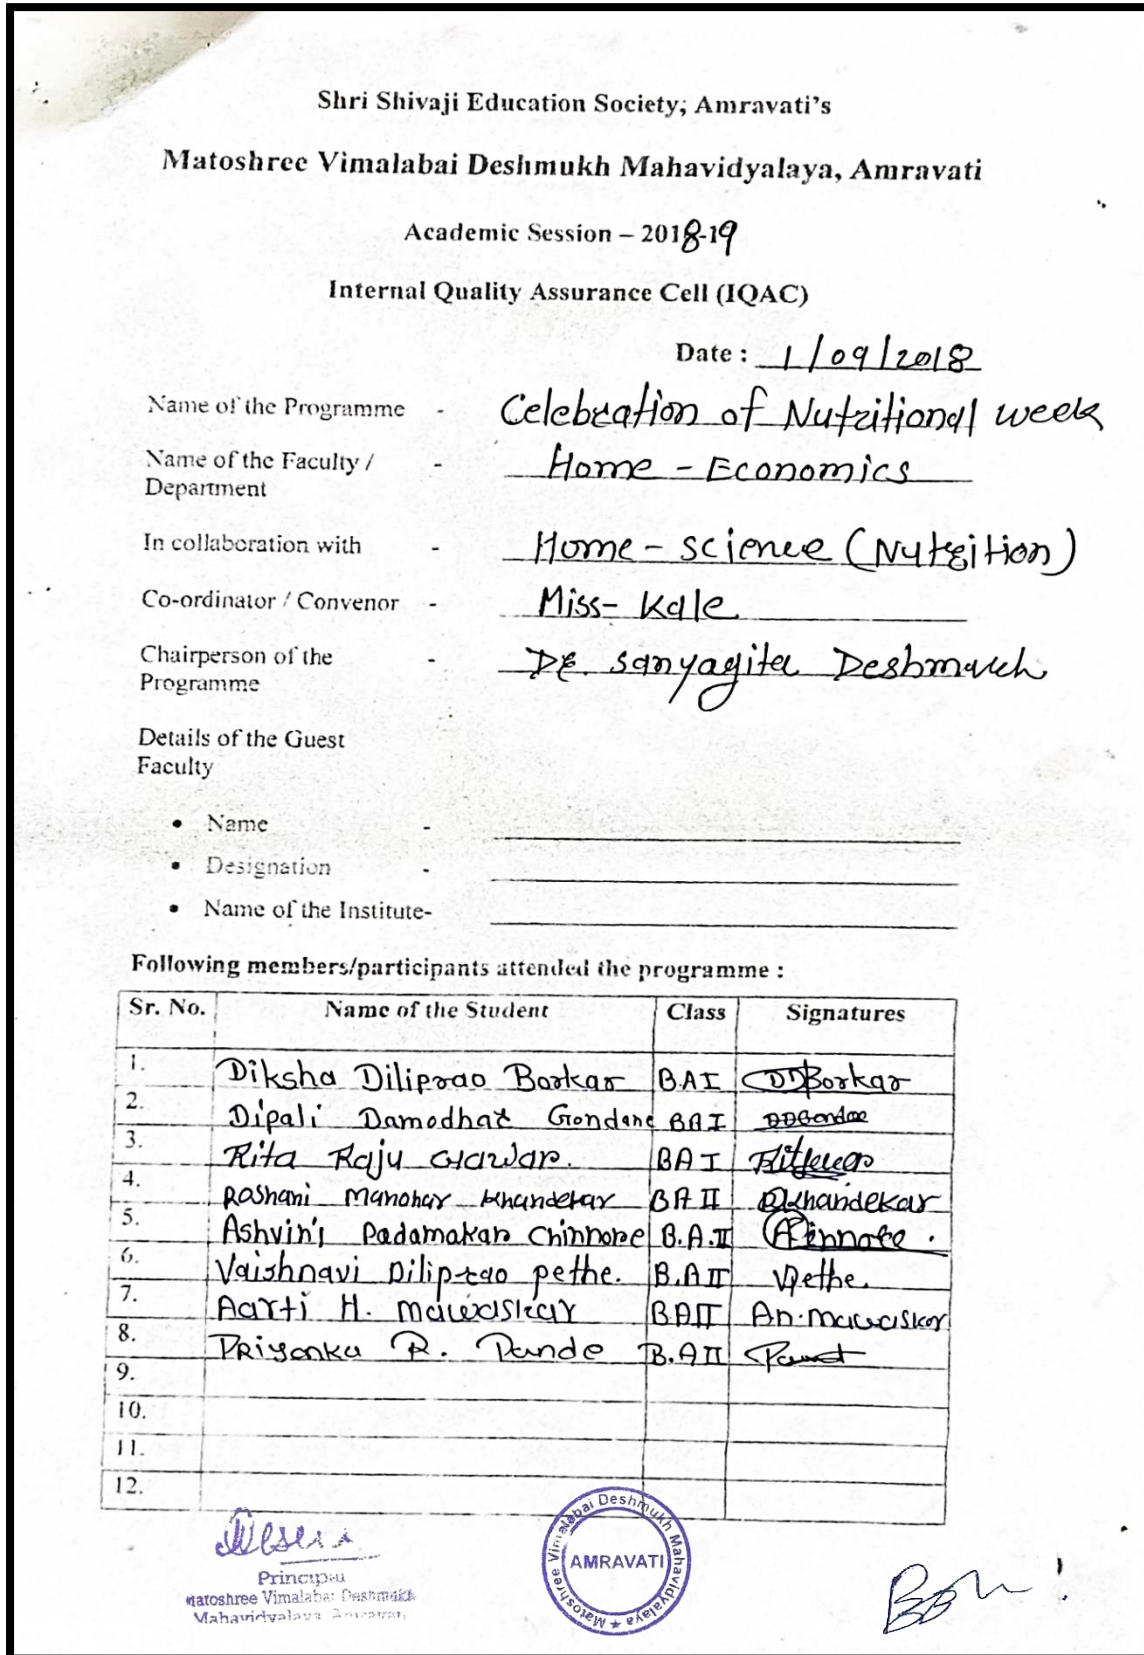 Shri Shivaji Education Society; Amravati's
Matoshree Vimalabai Deshmukh Mahavidyalaya, Amravati
Academic Session – 2018-19
Internal Quality Assurance Cell (IQAC)
Date : 1/09/2018
Name of the Programme - Celebration of Nutritional week
Name of the Faculty / Department - Home - Economics
In collaboration with - Home - science (Nutrition)
Co-ordinator / Convenor - Miss- Kale
Chairperson of the Programme - Dr. sanyagita Deshmukh
Details of the Guest
Faculty
• Name -
• Designation -
• Name of the Institute-
Following members/participants attended the programme :
Sr. No. Name of the Student Class Signatures
1. Diksha Diliprao Borkar BAI DDBorkar
2. Dipali Damodhar Gondane BAI
3. Rita Raju BAI
4. Roshani Manohar Khandekar BAII RKhandekar
5. Ashvini Padamakar Chinnore B.A.II
6. Vaishnavi Diliprao pethe. B.AII Vpethe.
7. Aarti H. mawaskar BAII
8. Priyanka R. Pande B.AII
9.
10.
11.
12.
Principal
Matoshree Vimalabai Deshmukh
Mahavidyalaya Amravati
Matoshree Vimalabai Deshmukh Mahavidyalaya ★
AMRAVATI